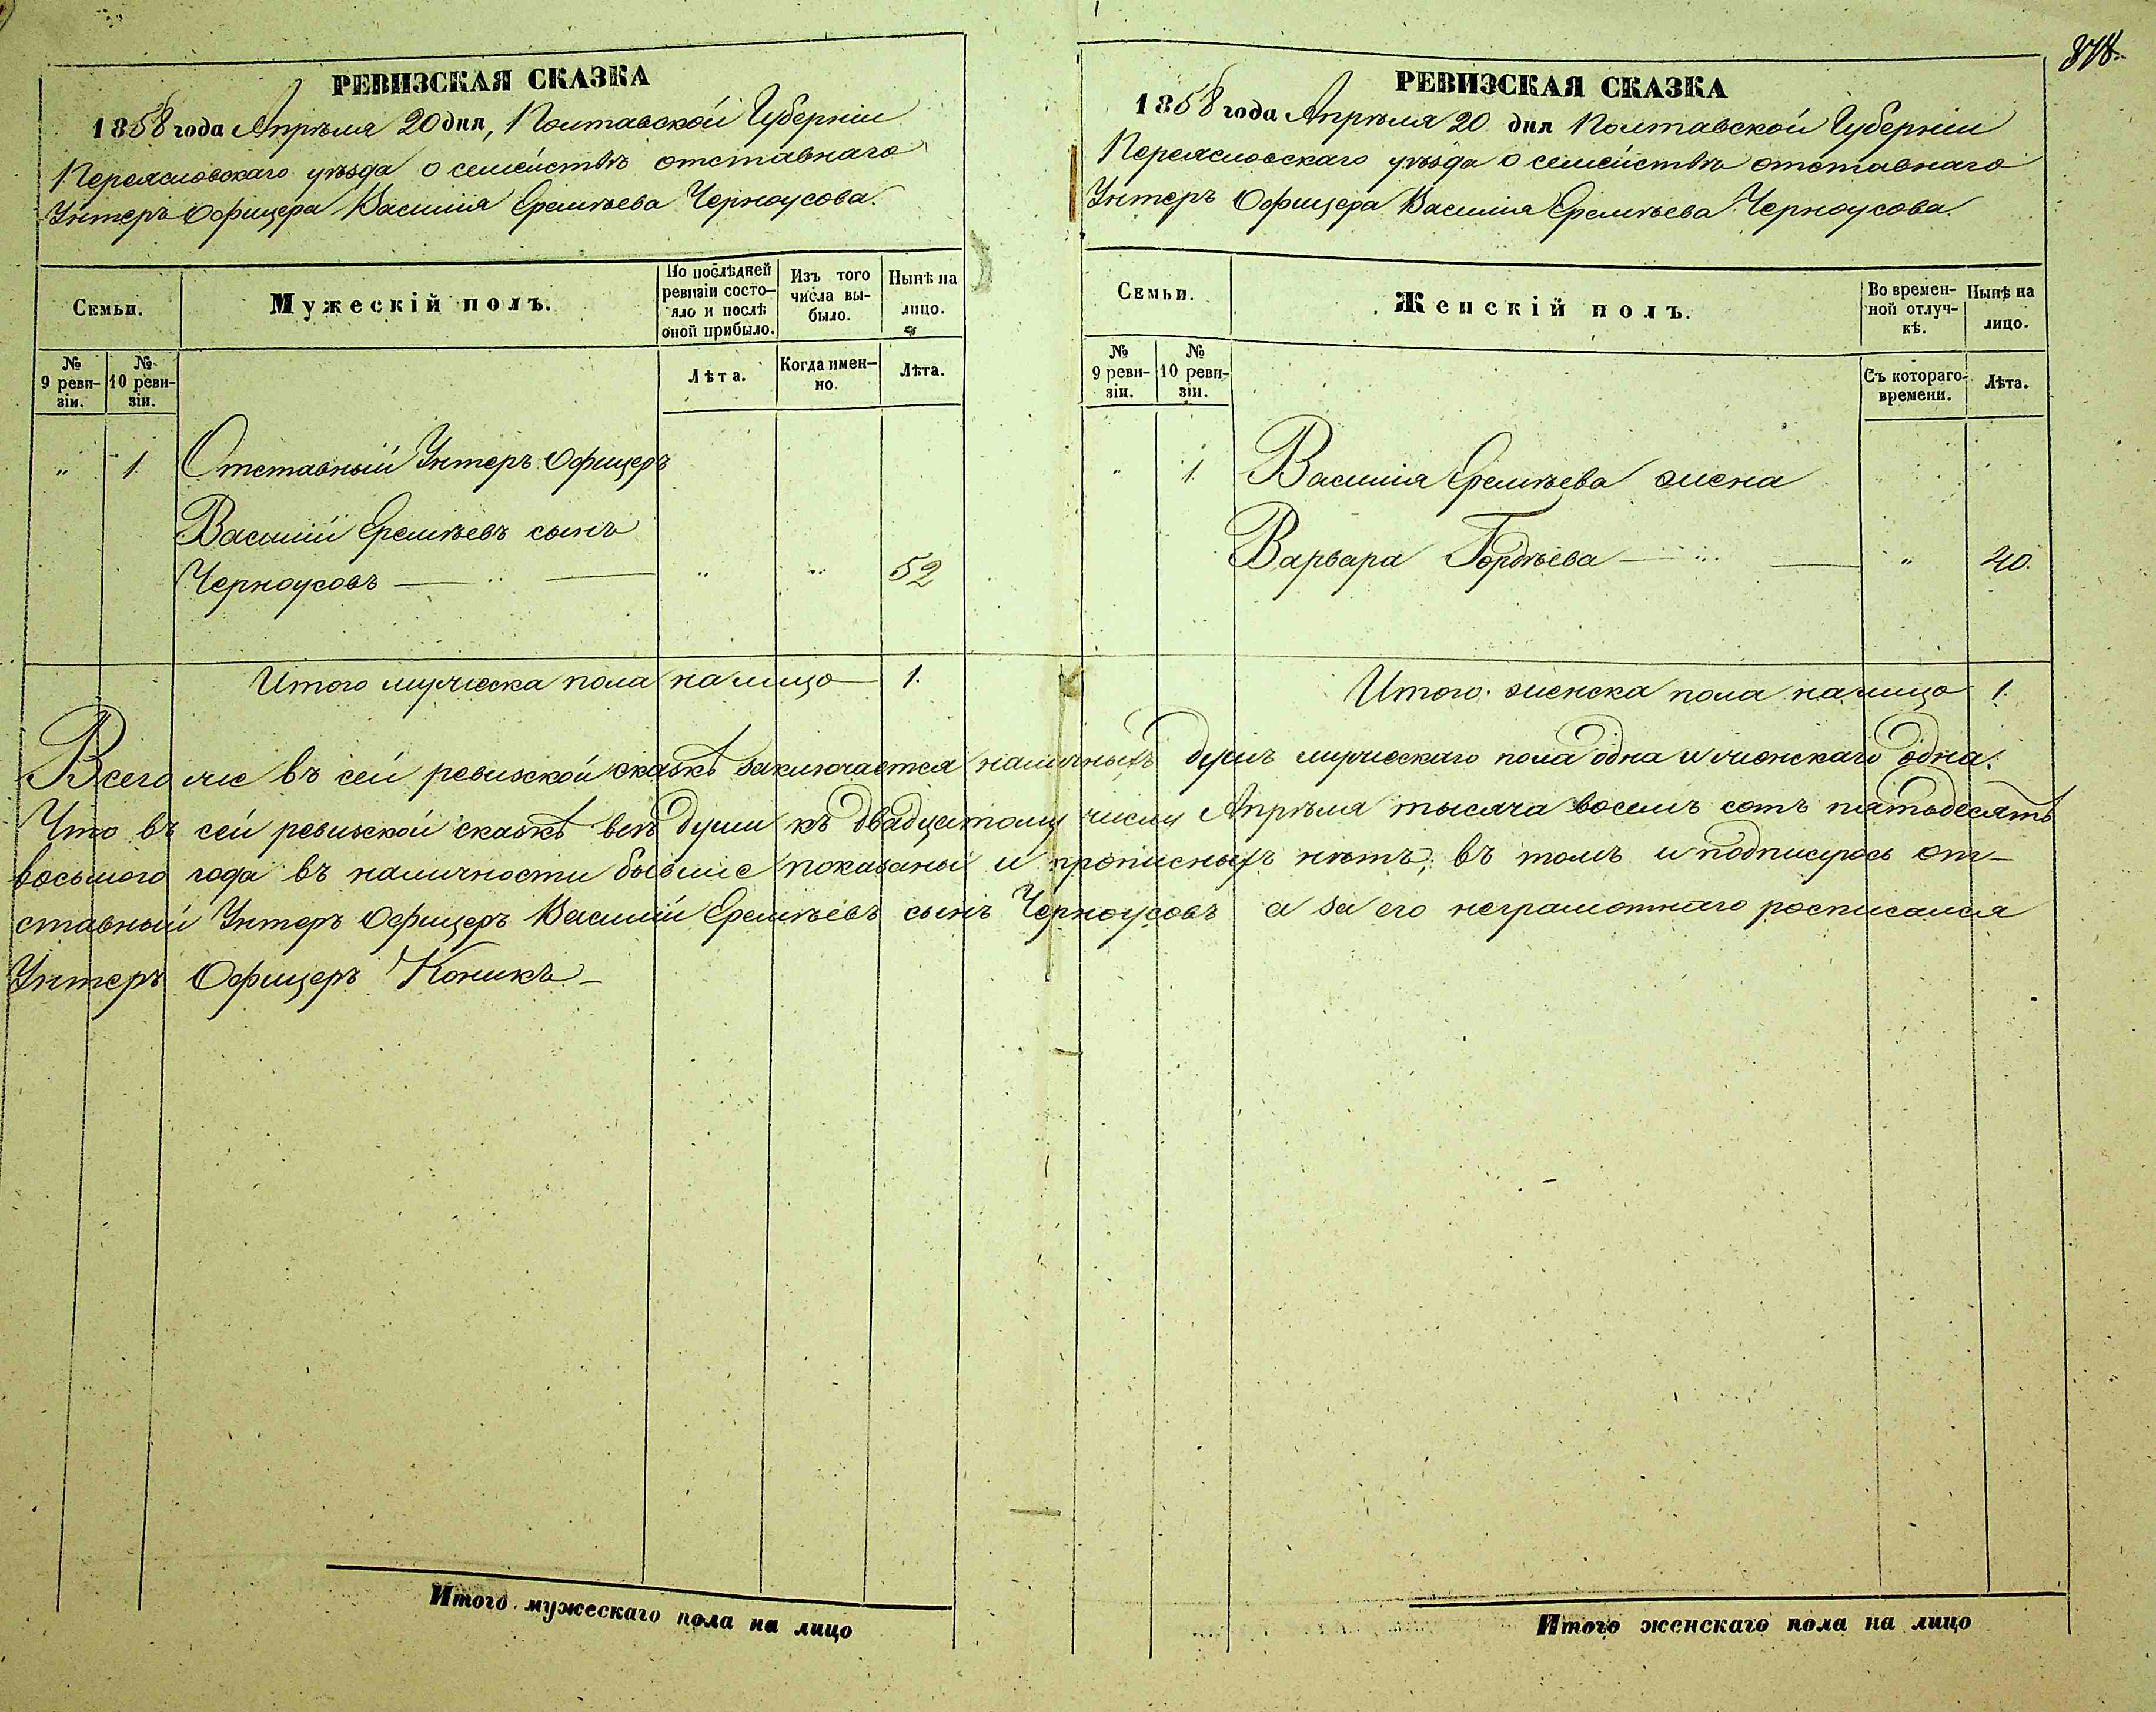 878.
РЕВИЗСКАЯ СКАЗКА
1858 года Апрѣля 20 дня, Полтавской Губерніи
Переясловскаго уѣзда о семействѣ отставнаго
Унтеръ Офицера Василія Еремѣева Черноусова.
Семьи.
Мужескій полъ.
По послѣдней
ревизіи состо-
яло и послѣ
оной прибыло.
Изъ того
числа вы-
было.
Нынѣ на
лицо.
№
9 реви-
зіи.
№
10 реви-
зіи.
Лѣта.
Когда имен-
но.
Лѣта.
" 1. Отставный Унтеръ Офицеръ
Василій Еремѣевъ сынъ
Черноусовъ — " — " " 52
Итого мужеска пола на лицо 1.
РЕВИЗСКАЯ СКАЗКА
1858 года Апрѣля 20 дня Полтавской Губерніи
Переясловскаго уѣзда о семействѣ отставнаго
Унтеръ Офицера Василія Еремѣева Черноусова.
Семьи.
Женскій полъ.
Во времен-
ной отлуч-
кѣ.
Нынѣ на
лицо.
№
9 реви-
зіи.
№
10 реви-
зіи.
Съ котораго
времени.
Лѣта.
" 1. Василія Еремѣева жена
Варвара Гордѣева — " — " 40.
Итого женска пола на лицо 1.
Всего же въ сей ревизской сказкѣ заключается наличныхъ душъ мужескаго пола одна и женскаго одна.
Что въ сей ревизской сказкѣ всѣ души къ двадцатому числу Апрѣля тысяча восемъ сотъ пятьдесятъ
восьмого года въ наличности бывшіе показаны и прописныхъ нѣтъ; въ томъ и подписуюсь от-
ставный Унтеръ Офицеръ Василій Еремѣевъ сынъ Черноусовъ а за его неграмотнаго росписался
Унтеръ Офицеръ Коникъ —
Итого мужескаго пола на лицо
Итого женскаго пола на лицо